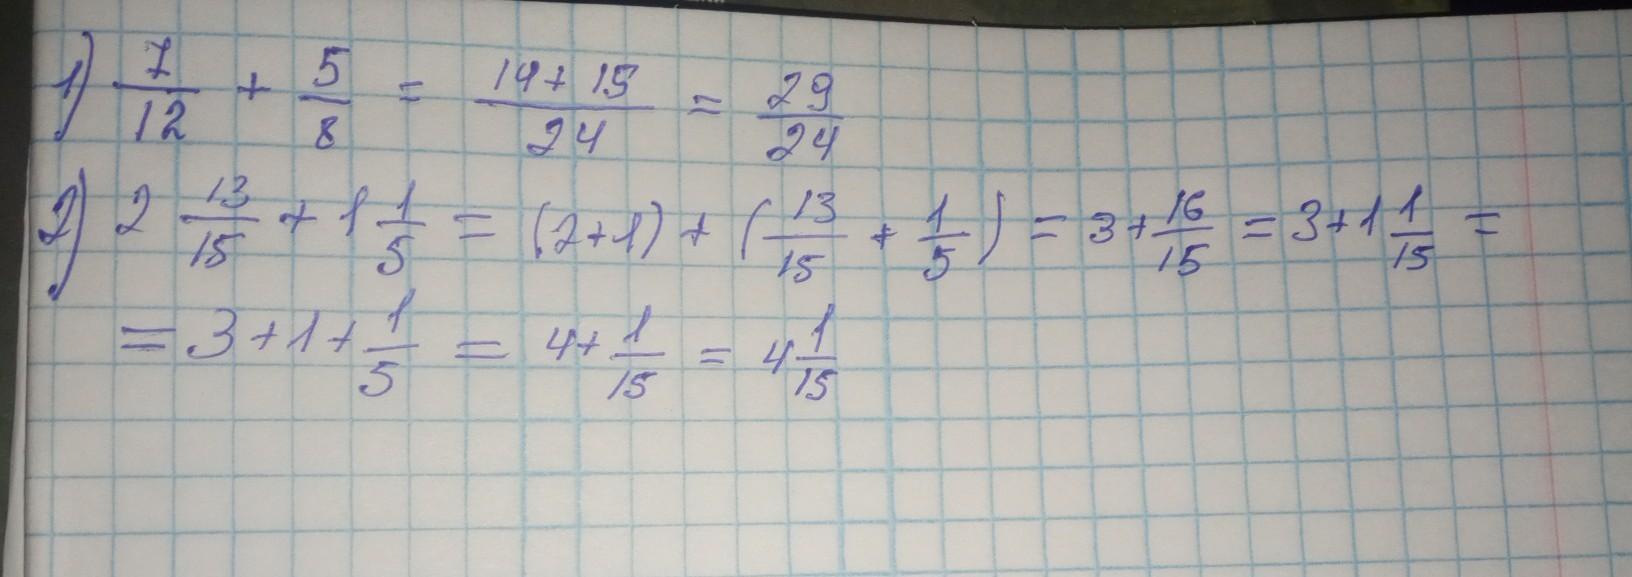 1) 7/12 + 5/8 = 14+15/24 = 29/24
2) 2 13/15 + 1 1/5 = (2+1) + (13/15 + 1/5) = 3+16/15 = 3+1 1/15 =
= 3+1+1/5 = 4+1/15 = 4 1/15